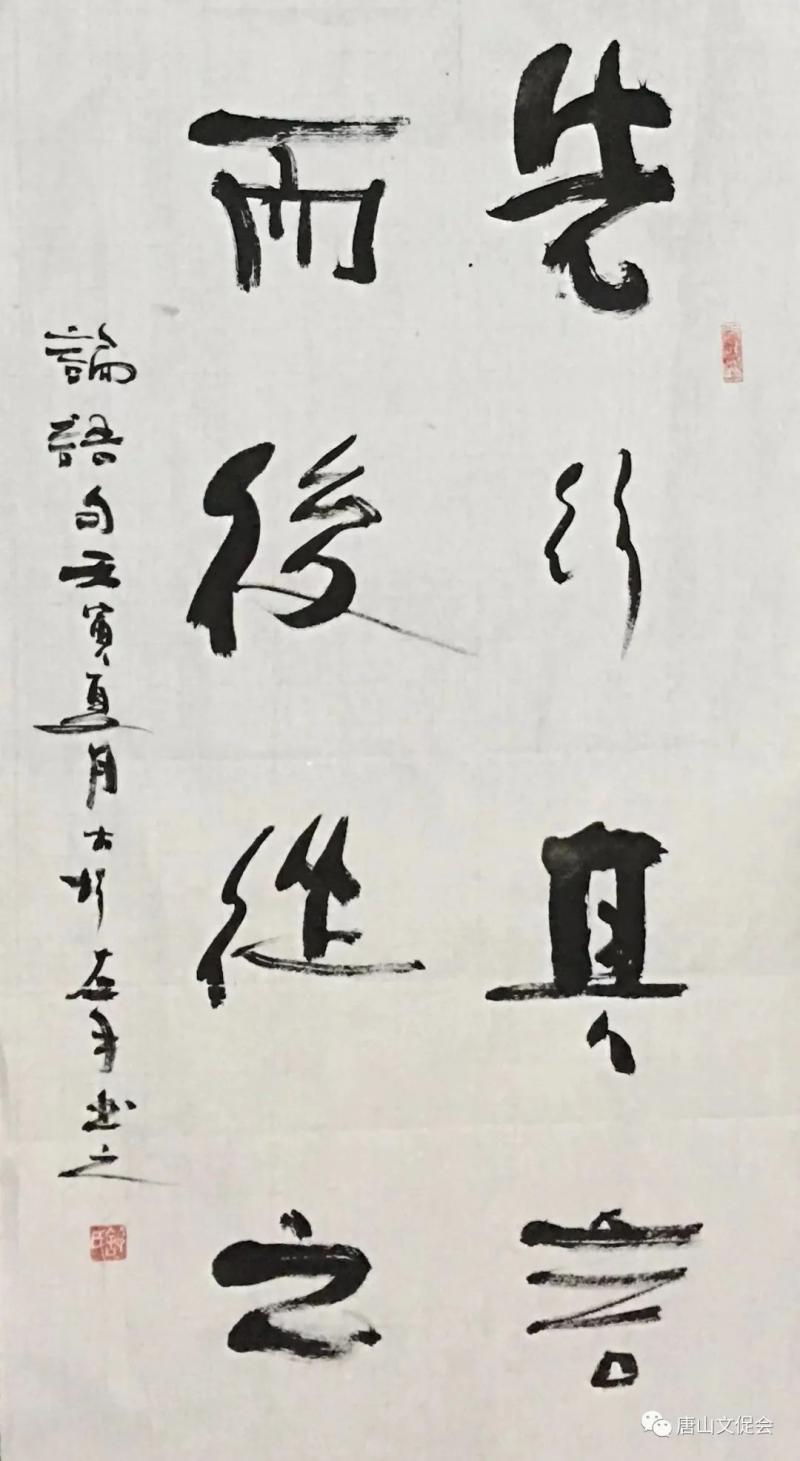 先行其言
而後從之
論語句壬寅夏月古村左手書之
唐山文促会